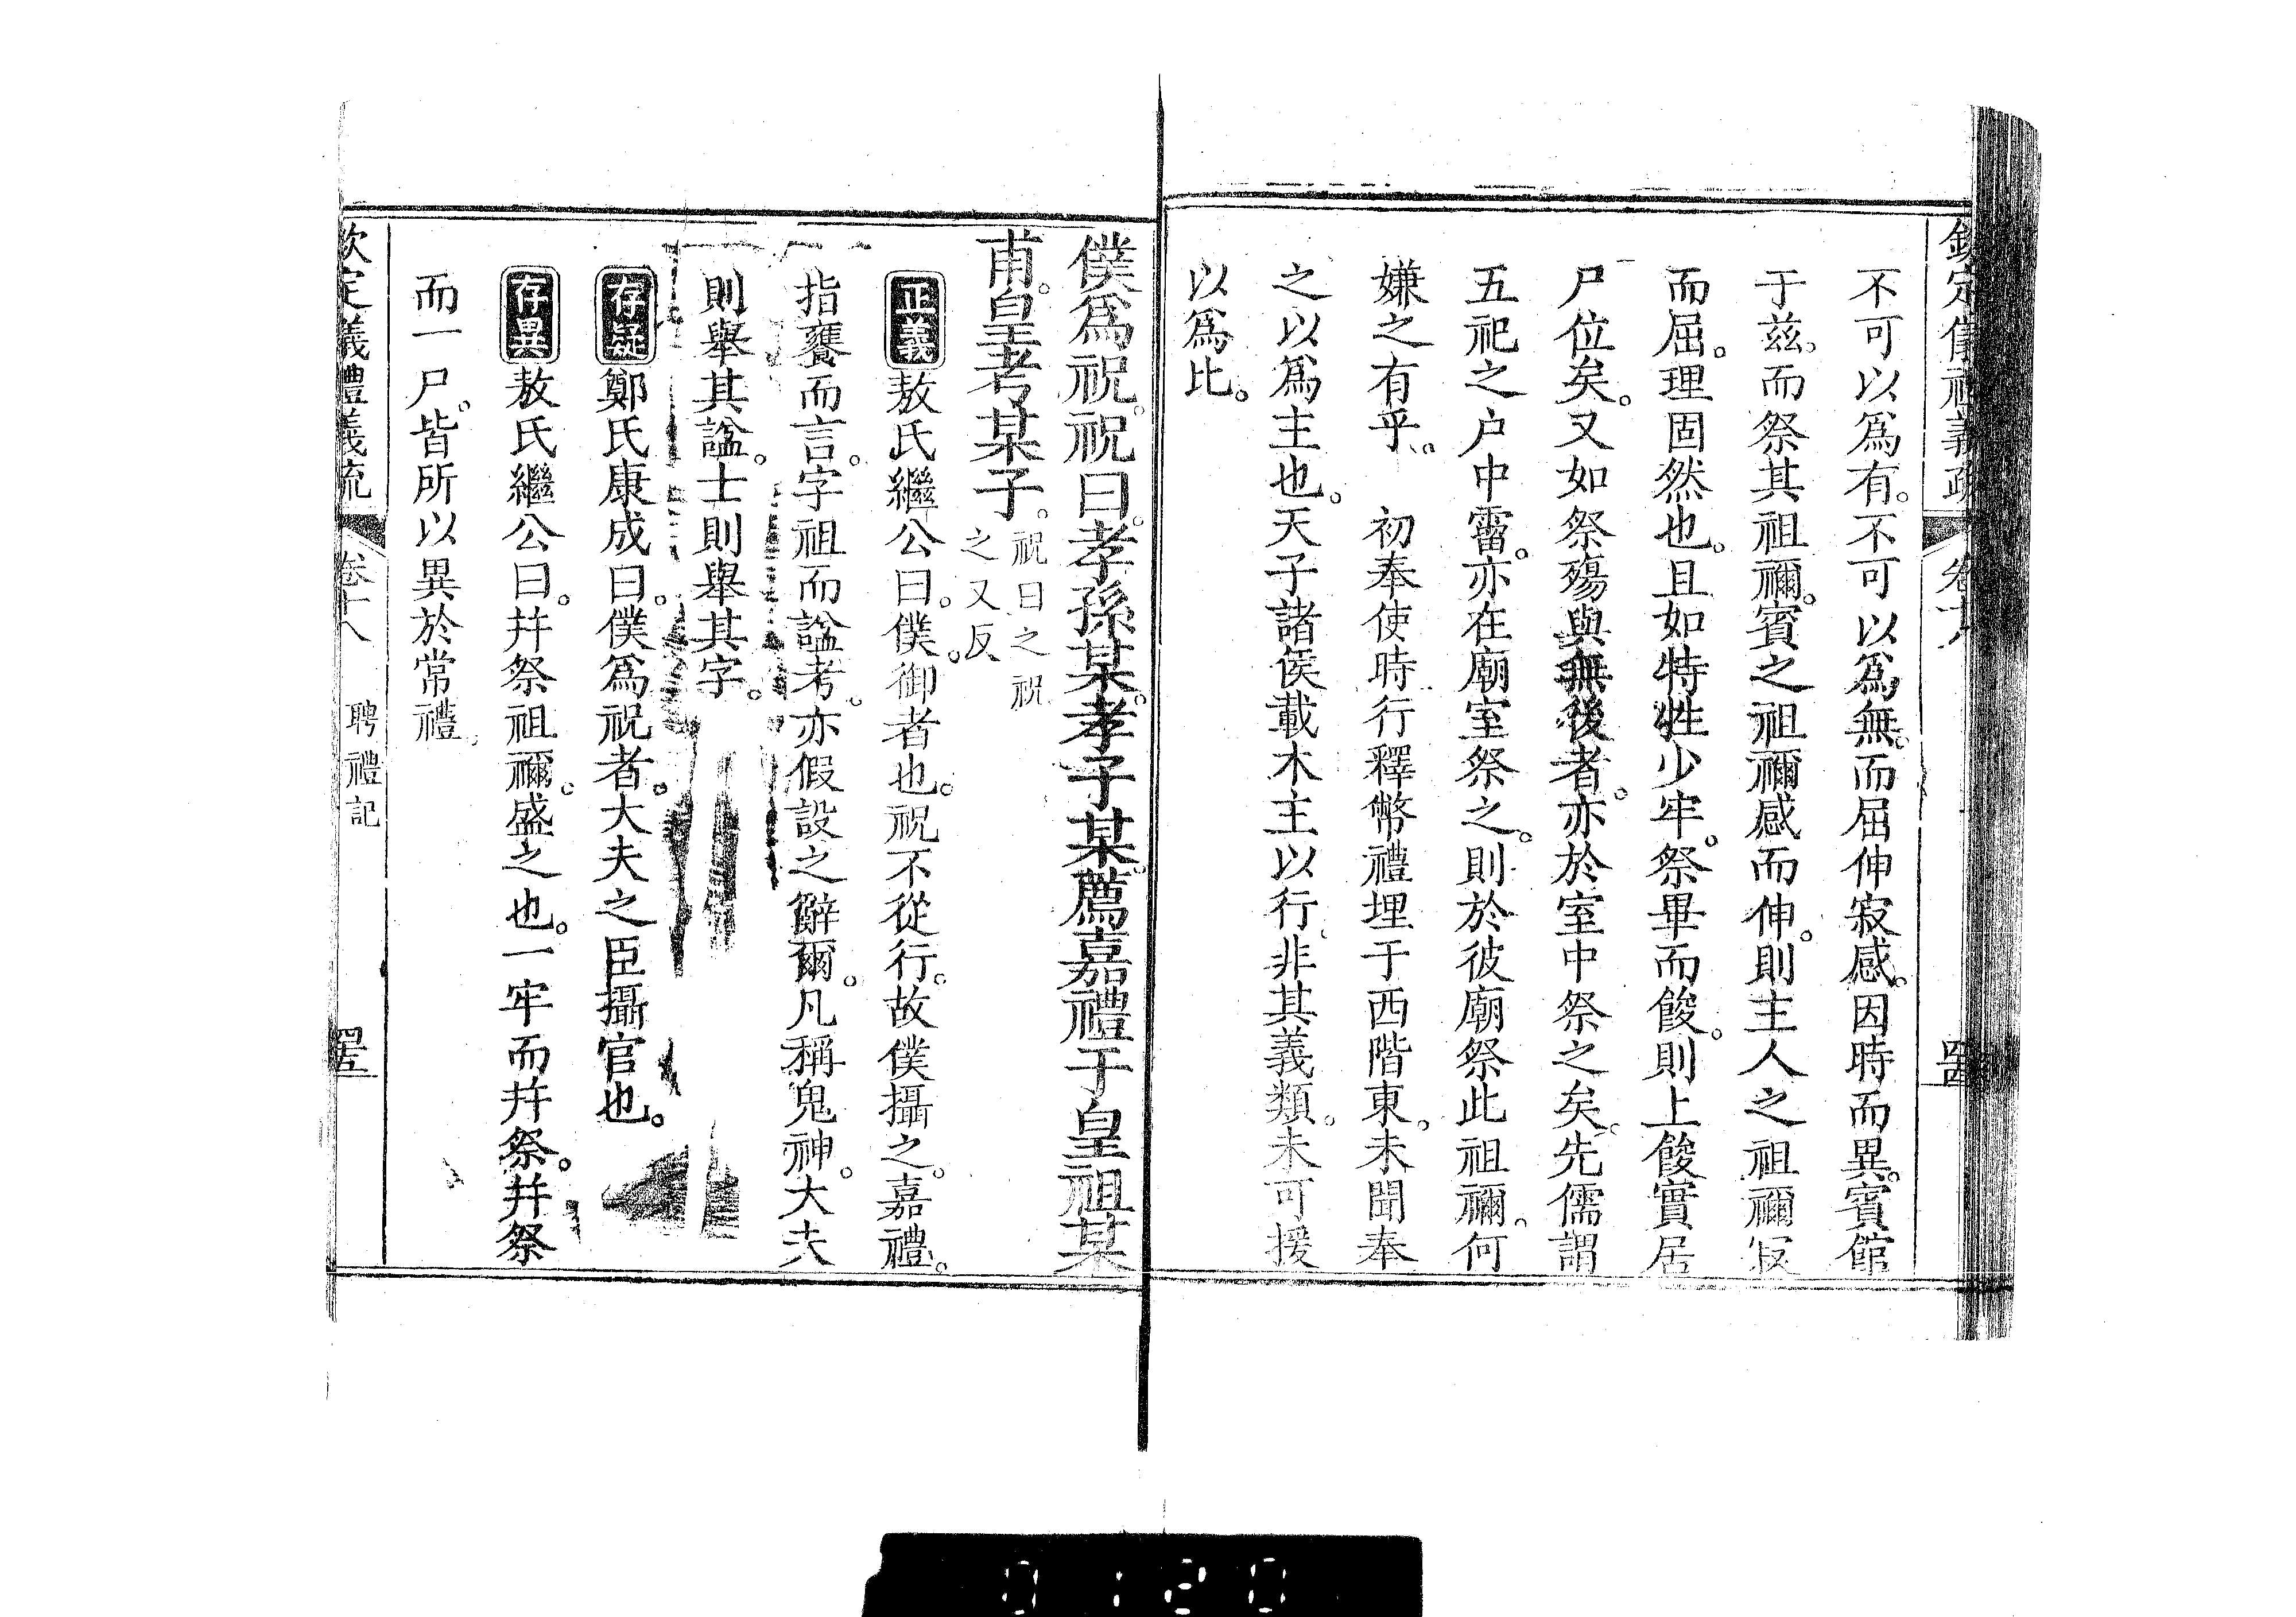 欽定儀禮義疏 卷十八 四十四
不可以爲有。不可以爲無。而屈伸寂感。因時而異。賓館
于兹。而祭其祖禰。賓之祖禰感而伸。則主人之祖禰寂
而屈。理固然也。且如特牲少牢。祭畢而餕。則上餕實居
尸位矣。又如祭殤與無後者。亦於室中祭之矣。先儒謂
五祀之户中霤。亦在廟室祭之。則於彼廟祭此祖禰。何
嫌之有乎。 初奉使時行釋幣禮埋于西階東。未聞奉
之以爲主也。天子諸侯載木主以行。非其義類。未可援
以爲比。
僕爲祝。祝曰。孝孫某。孝子某。薦嘉禮于皇祖某
甫。皇考某子。祝曰之祝
之又反
正義 敖氏繼公曰。僕。御者也。祝不從行。故僕攝之。嘉禮。
指饔而言。字祖而諡考。亦假設之辭爾。凡稱鬼神。大夫
則舉其諡。士則舉其字。
存疑 鄭氏康成曰。僕爲祝者。大夫之臣攝官也。
存異 敖氏繼公曰。幷祭祖禰。盛之也。一牢而幷祭。幷祭
而一尸。皆所以異於常禮。
欽定儀禮義疏 卷十八 聘禮記 四十五
0120